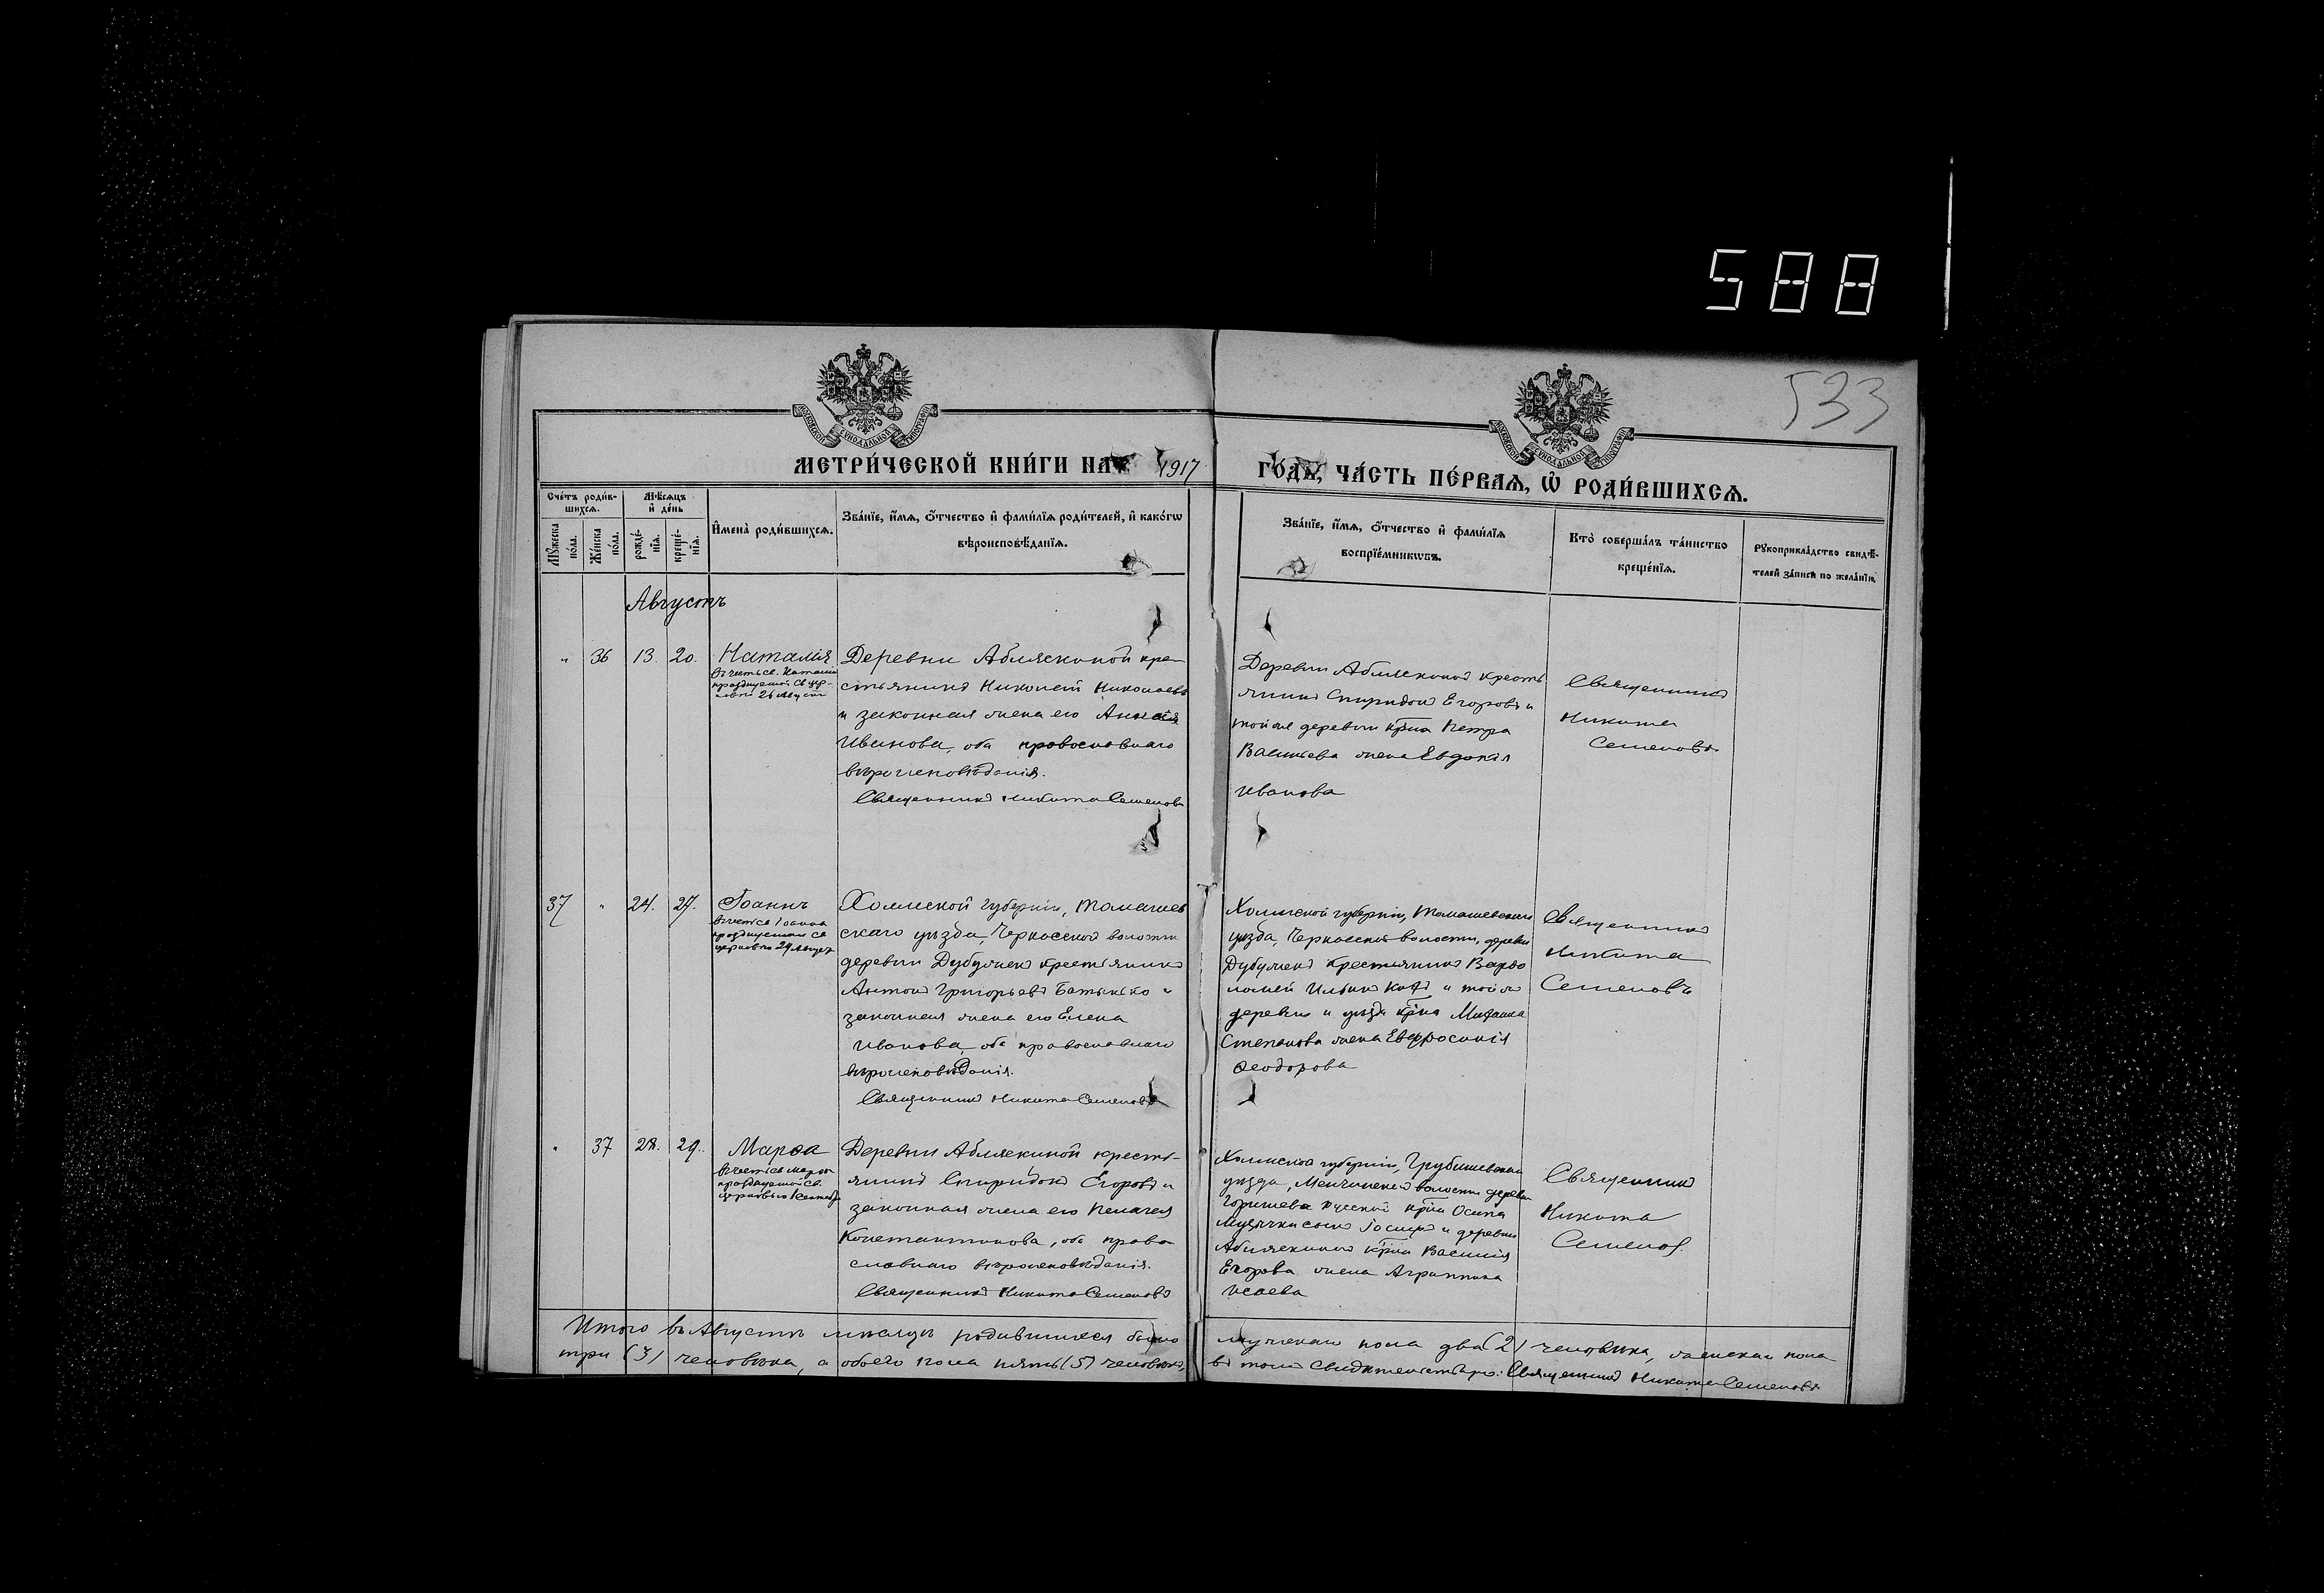 588
533
МОСКОВСКОЙ СѴНОДАЛЬНОЙ ТИПОГРАФІИ
МОСКОВСКОЙ СѴНОДАЛЬНОЙ ТИПОГРАФІИ
МЕТРИ́ЧЕСКОЙ КНИ́ГИ НА 1917 ГО́ДЪ, ЧА́СТЬ ПЕ́РВАѦ, Ѽ РОДИ́ВШИХСѦ.
Сче́тъ роди́в-
шихсѧ.
Мꙋ́жеска по́ла.
Же́нска по́ла.
Мѣ́сѧцъ и҆ де́нь
рожде́-
нїѧ.
креще́-
нїѧ.
И҆мена̀ роди́вшихсѧ.
Зва́нїе, и҆́мѧ, ѻ҆́тчество и҆ фами́лїѧ роди́телей, и҆ како́гѡ
вѣроисповѣ́данїѧ.
Зва́нїе, и҆́мѧ, ѻ҆́тчество и҆ фами́лїѧ
воспрїе́мникѡвъ.
Кто̀ соверша́лъ та́инство
креще́нїѧ.
Рꙋкоприкла́дство свидѣ́-
телей за́писи по жела́нїю.
Августъ
" 36 13. 20. Наталія
въ честь св. Наталіи
празднуемой Св. цер-
ковью 26 Августа
Деревни Аблязкиной кре-
стьянинъ Николай Николаевъ
и законная жена его Анна
Иванова, оба православнаго
вѣроисповѣданія.
Священникъ Никита Семеновъ
Деревни Аблязкиной кресть
янинъ Спиридонъ Егоровъ и
той же деревни кр҃на Петра
Васильева жена Евдокія
Иванова
Священникъ
Никита
Семеновъ
37 " 24. 27. Іоаннъ
въ честь св. Іоанна
празднуемаго св.
церковью 29 Август
Холмской губерніи, Томашев
скаго уѣзда, Черкасской волости
деревни Дубулжекъ крестьянинъ
Антонъ Григорьевъ Батынко и
законная жена его Елена
Иванова, оба православнаго
вѣроисповѣданія.
Священникъ Никита Семеновъ
Холмской губерніи, Томашевскаго
уѣзда, Черкасской волости, деревни
Дубулжекъ крестьянинъ Варѳо
ломей Ильинъ и той же
деревни и уѣзда кр҃на Михаила
Степанова жена Евфросинія
Ѳеодорова
Священникъ
Никита
Семеновъ
" 37 28. 29. Марѳа
въ честь св. Марѳы
празднуемой Св.
церковью 1 Сентября
Деревни Аблязкиной кресть-
янинъ Спиридонъ Егоровъ и
законная жена его Пелагея
Константинова, оба право
славнаго вѣроисповѣданія.
Священникъ Никита Семеновъ
Холмской губерніи, Грубешевскаго
уѣзда, волости деревни
кр҃на Осипа
сынъ и деревни
Аблязкиной кр҃на Василія
Егорова жена Агриппина
Исаева
Священникъ
Никита
Семеновъ.
Итого въ Августѣ мѣсяцѣ родившихся было мужескаго пола два (2) человѣка, женскаго пола
три (3) человѣка, а обоего пола пять (5) человѣкъ, въ томъ свидѣтельствую: Священникъ Никита Семеновъ